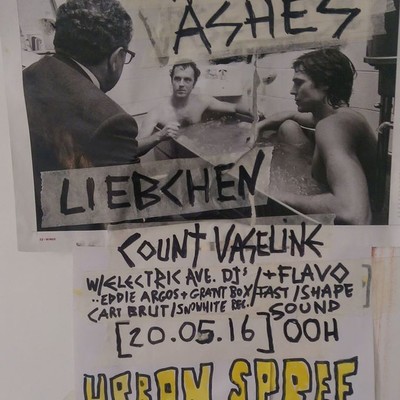 ASHES
LIEBCHEN
COUNT VASELINE
W/ELECTRIC AVE. DJS / + FLAVO
..EDDIE ARGOS + GRANT BOX / FAST / SHAPE
CART BRUT / SNOWHITE REC. / SOUND
[20.05.16] 00H
URBAN SPREE